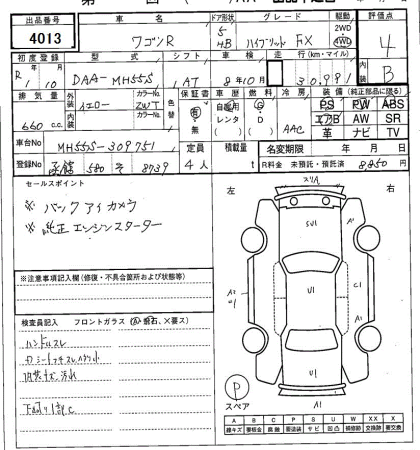 出品番号 車名 ドア形状 グレード 駆動 評価点
4013 ワゴンR 5 HB ハイブリッド FX 2WD 4WD 4
初度登録 型式 シフト 車検 走行(km・マイル) 内装
R1/10 DAA-MH55S AT 8年10月 30,991 B
排気量 外装 カラーNo. 色替 車歴 燃料 冷房 装備(純正部品に限る)
660cc イエロー ZWT 有 自家用 G AAC PS PW ABS
内装 カラーNo. 無 レンタ D エアB AW SR
革 ナビ TV
車台No MH55S-309751 定員 積載量 名変期限 年 月 日
登録No 580 8739 4人 t R料金 未預託・預託済 8,850円
セールスポイント
※ バックアイカメラ
※ 純正エンジンスターター
※注意事項記入欄(修復・不具合箇所および状態等)
検査員記入 フロントガラス(A飛石、×要ス)
ハンドルスレ
左 右
スリA
A1
SU1
A1
U1
C1
U1
P
スペア
A1
A B C P S U W XX X
線キズ 要板金 腐蝕 要塗装 サビ 凹凸 補修跡 交換跡 要交換